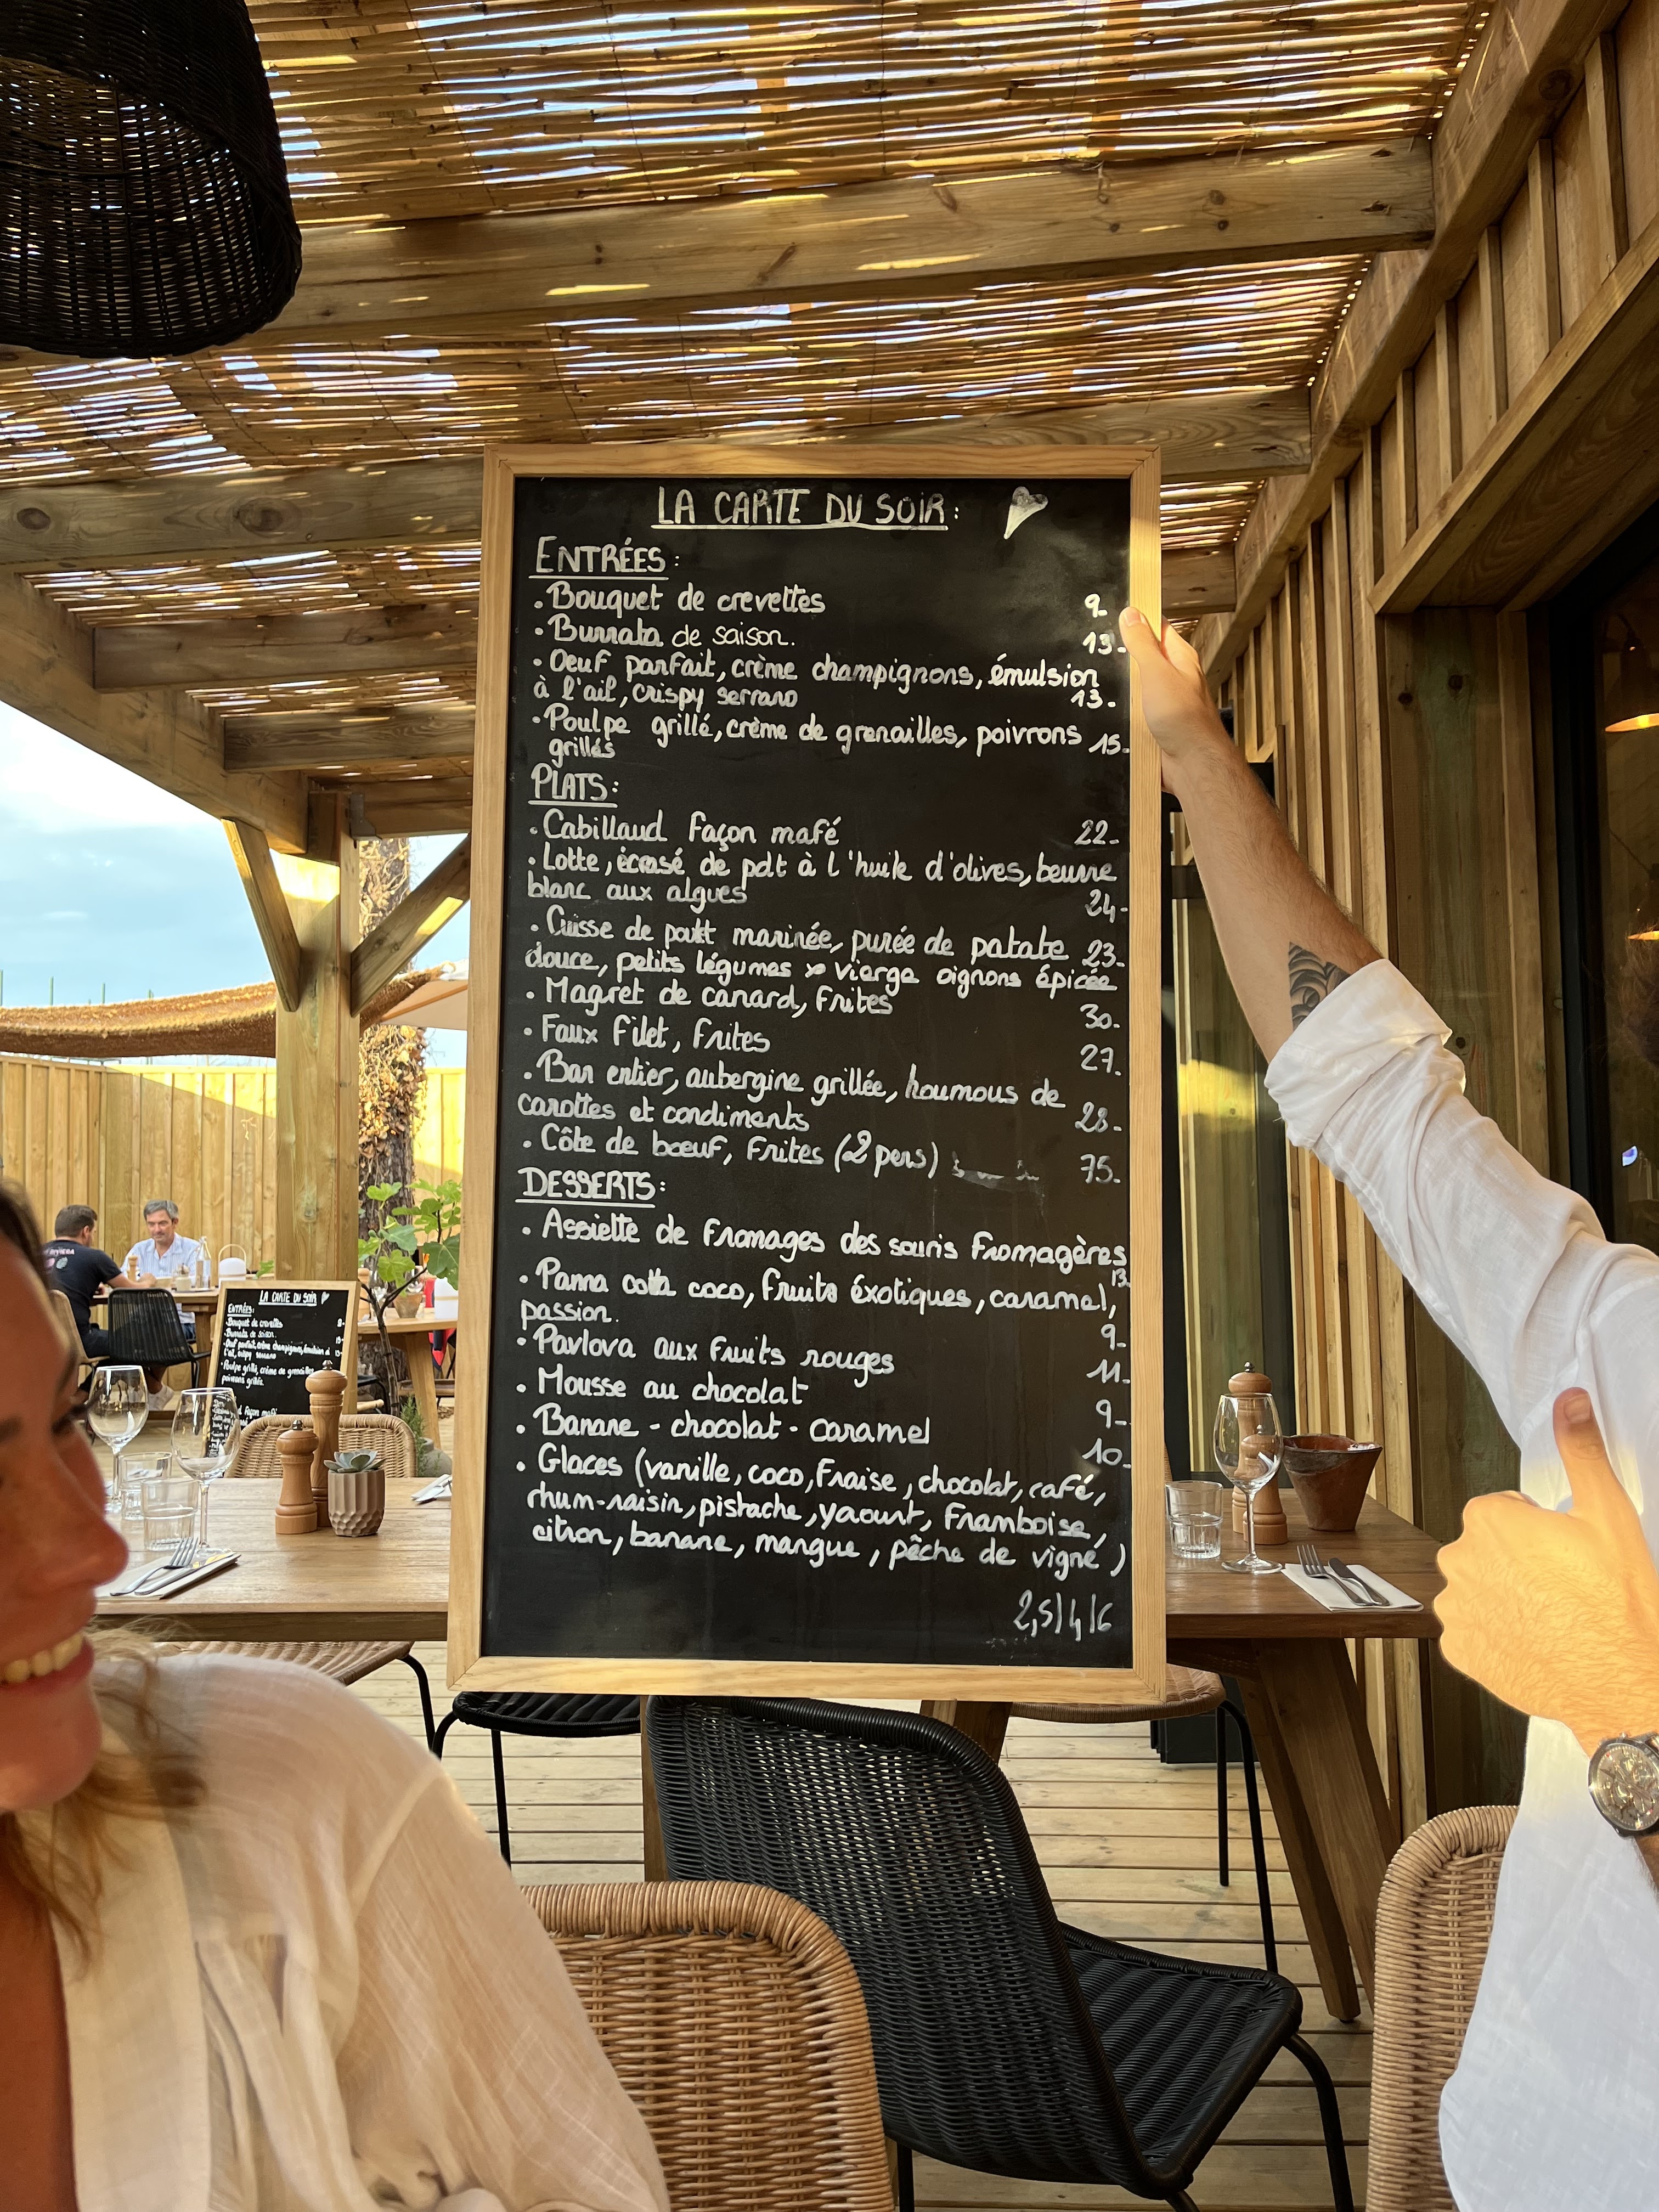 LA CARTE DU SOIR:
ENTRÉES:
. Bouquet de crevettes 9-
. Burrata de saison. 13-
. Oeuf parfait, crème champignons, émulsion
à l'ail, crispy serrano 13-
. Poulpe grillé, crème de grenailles, poivrons 15-
grillés
PLATS:
. Cabillaud façon mafé 22-
. Lotte, écrasé de pdt à l'huile d'olives, beurre
blanc aux algues 24-
. Cuisse de poulet marinée, purée de patate 23-
douce, petits légumes vierge oignons épicée
. Magret de canard, frites 30-
. Faux filet, frites 27-
. Bar entier, aubergine grillée, houmous de
carottes et condiments 28-
. Côte de bœuf, frites (2 pers) 75-
DESSERTS:
. Assiette de fromages des souris fromagères
13-
. Panna cotta coco, fruits éxotiques, caramel,
passion. 9-
. Pavlova aux fruits rouges 11-
. Mousse au chocolat 9-
. Banane - chocolat - caramel 10-
. Glaces (vanille, coco, fraise, chocolat, café,
rhum-raisin, pistache, yaourt, framboise,
citron, banane, mangue, pêche de vigne)
2,5/4/6
LA CARTE DU SOIR
ENTRÉES:
. Bouquet de crevettes
. Burrata de saison.
. Oeuf parfait, crème champignons, émulsion à
l'ail, crispy serrano
. Poulpe grillé, crème de grenailles
poivrons grillés.
façon mafé